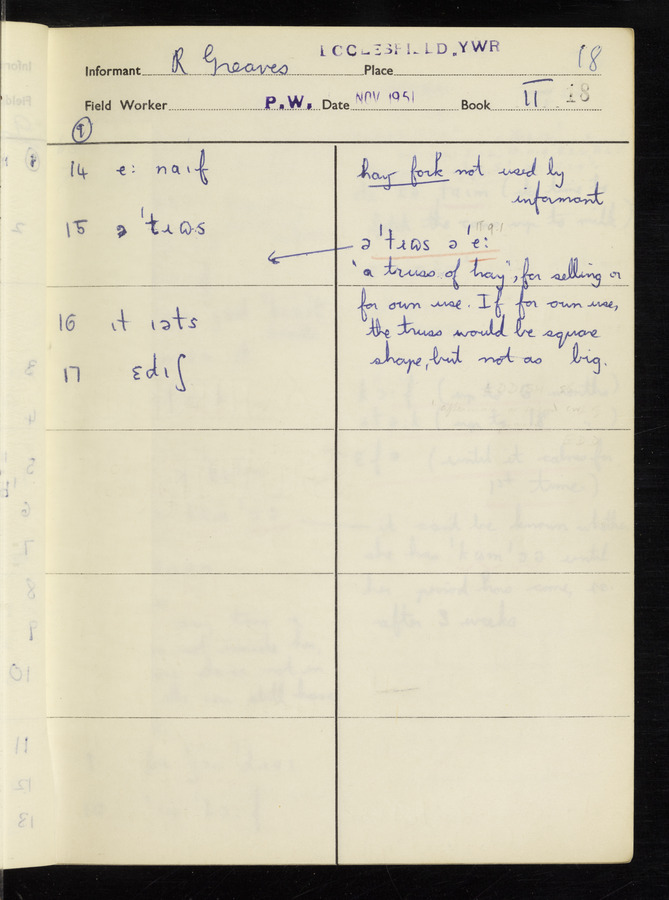 ECCLESFIELD, YWR
Informant R Greaves Place 18
Field Worker P.W. Date NOV 1951 Book II 18
9
14 e: naıf
15 ə 'tɹɷs
16 ıt ıəts
17 ɛdıʃ
hay fork not used by
informant
ə 'tɹɷs ə 'e:
"a truss of hay", for selling or
for own use. If for own use,
the truss would be square
shape, but not as big.